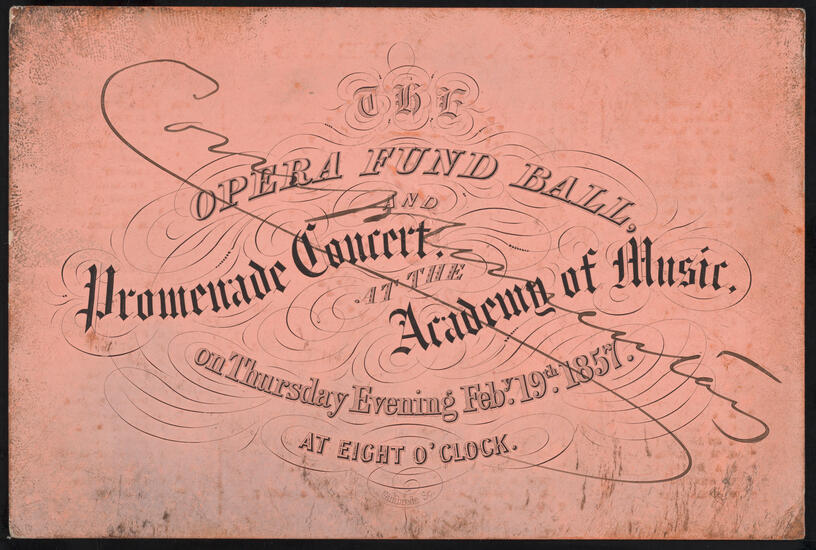 THE
OPERA FUND BALL,
AND
Promenade Concert.
AT THE
Academy of Music.
on Thursday Evening Feb.y 19th. 1857.
AT EIGHT O'CLOCK.
Complimentary